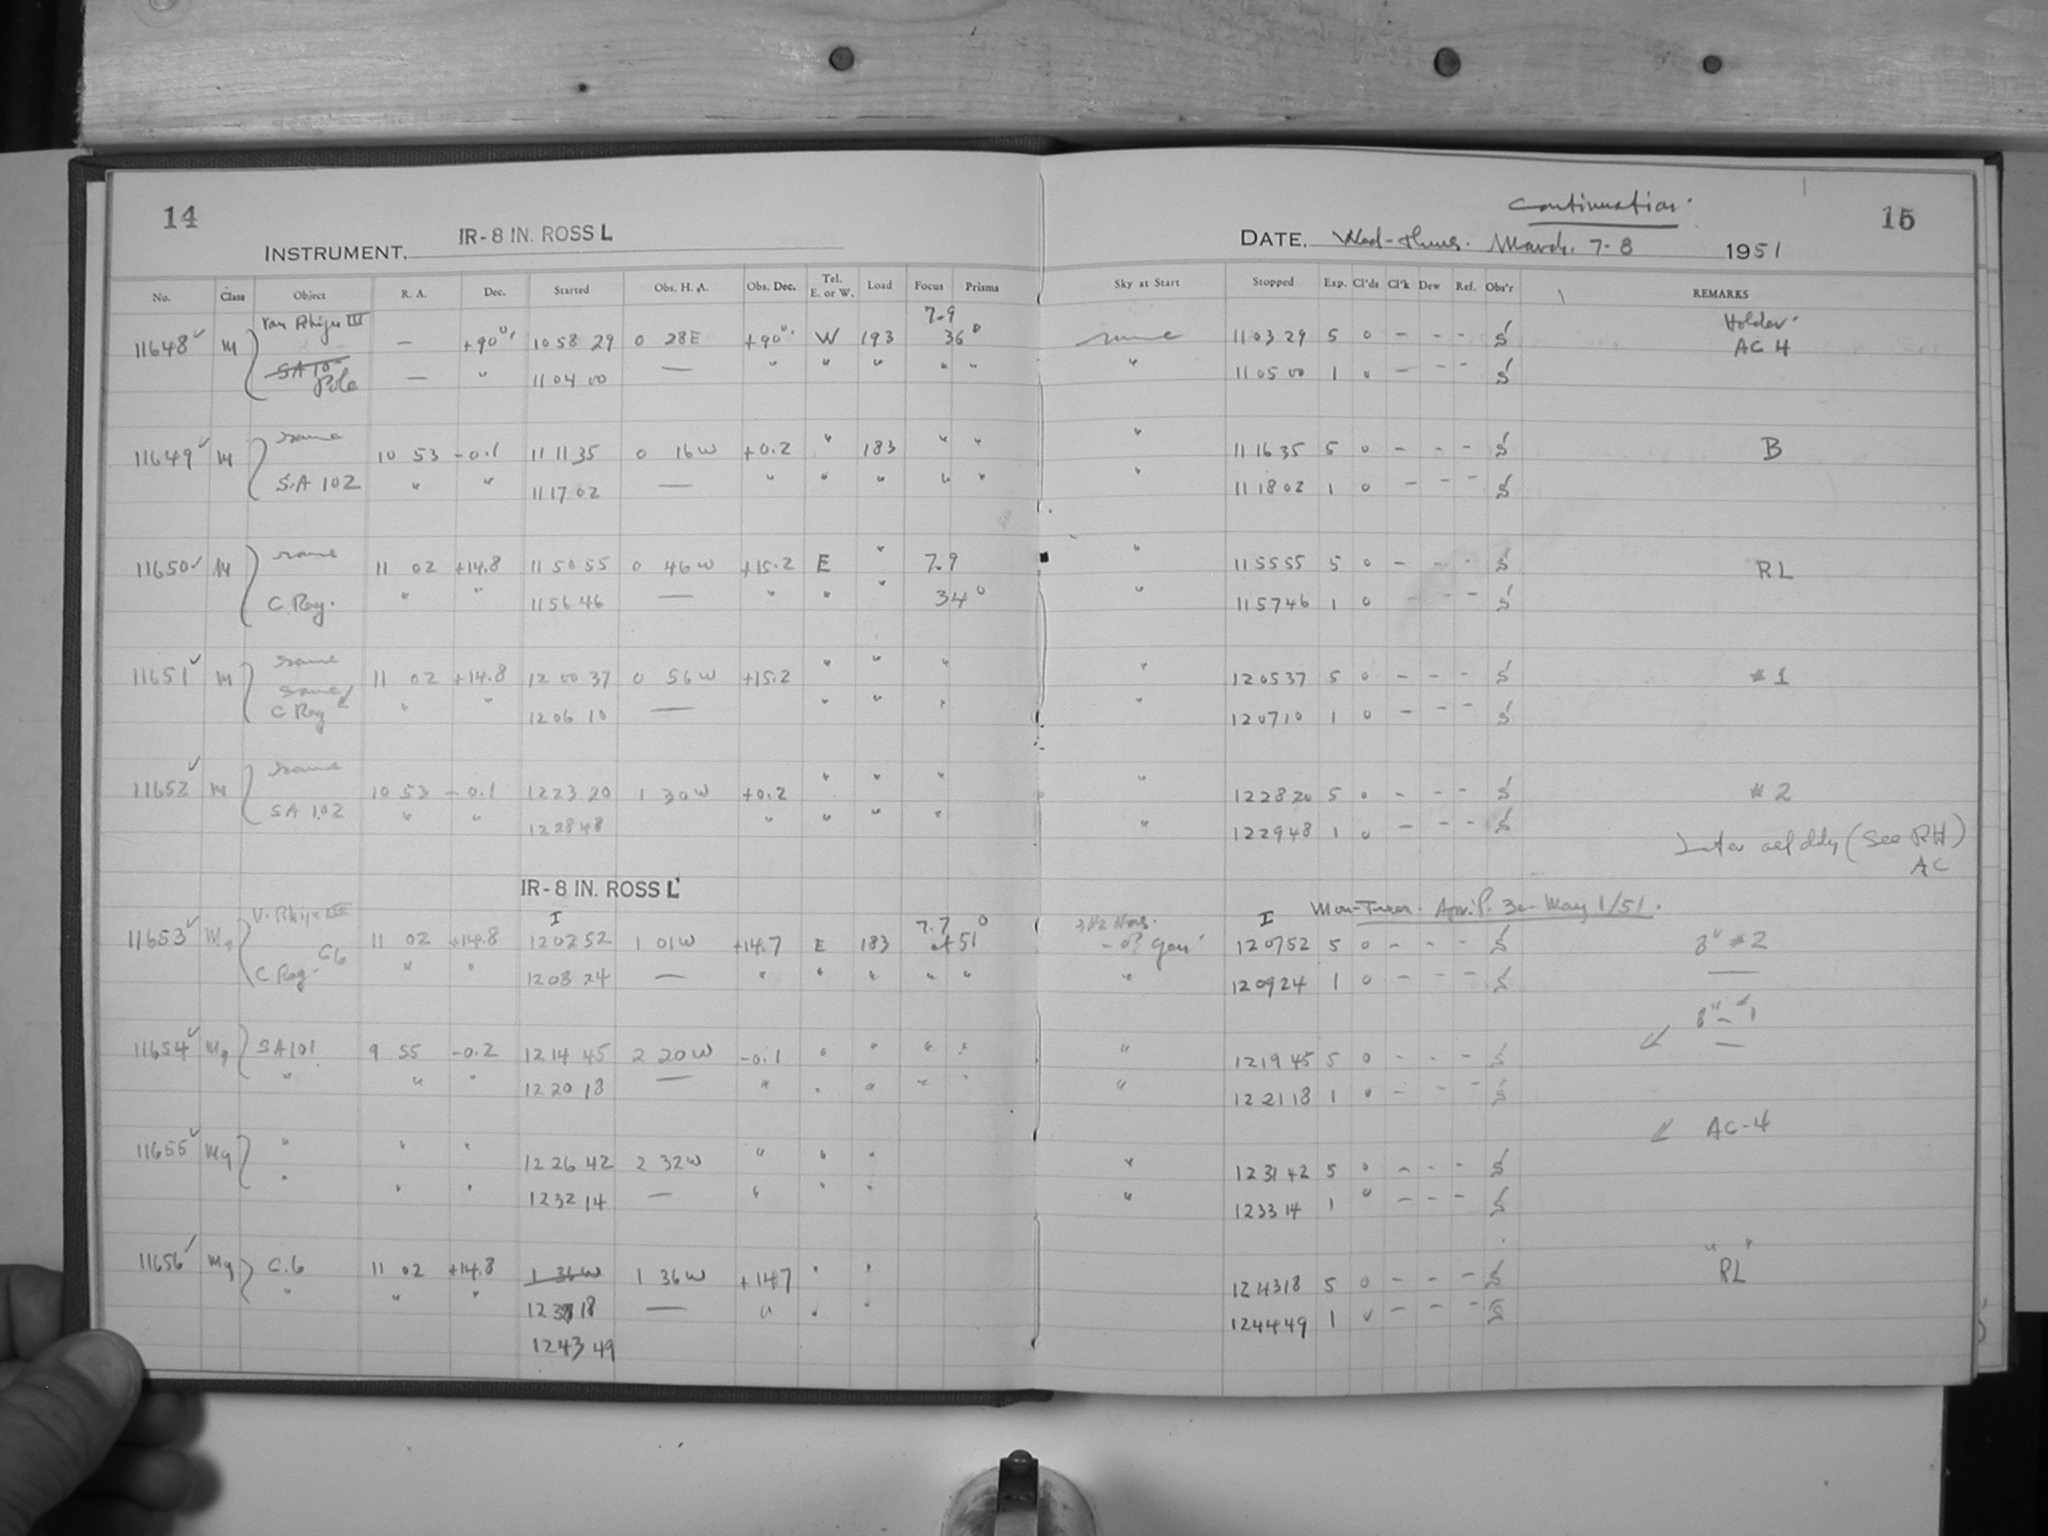 14
IR-8 IN. ROSS L
INSTRUMENT,
continuation
15
DATE, Wed-thurs. March. 7-8 1951
No. Class Object R. A. Dec. Started Obs. H. A. Obs. Dec. Tel. E. or W. Load Focus Prisms Sky at Start Stopped Exp. Cl'ds Cl'k Dew Ref. Obs'r REMARKS
Van Rhijn III 7.9 Holder
11648 ✓ M — +90° 10 58 29 0 28E +90° W 193 36° same 11 03 29 5 0 - - - S AC 4
SA 10 Pole — " 11 04 00 — " " " " " " 11 05 00 1 0 - - - S
same
11649 ✓ M 10 53 -0.1 11 11 35 0 16W +0.2 " 183 " " " 11 16 35 5 0 - - - S B
S.A 102 " " 11 17 02 — " " " " " " 11 18 02 1 0 - - - S
same
11650 ✓ M 11 02 +14.8 11 50 55 0 46W +15.2 E " 7.9 " 11 55 55 5 0 - - - S RL
C. Reg. " " 11 56 46 — " " " 34° " 11 57 46 1 0 - - - S
same
11651 ✓ M 11 02 +14.8 12 00 37 0 56W +15.2 " " " " 12 05 37 5 0 - - - S #1
same
C Reg " " 12 06 10 — " " " " 12 07 10 1 0 - - - S
same
11652 ✓ M 10 53 -0.1 12 23 20 1 30W +0.2 " " " " 12 28 20 5 0 - - - S #2
SA 102 " " 12 28 48 " " " " " 12 29 48 1 0 - - - S
(See RH)
AC
IR-8 IN. ROSS L
I I Mon-Tues. April 30 - May 1/51.
V. Rhijn III 7.7
11653 ✓ Mg 11 02 +14.8 12 02 52 1 01W +14.7 E 183 at 51° 12 07 52 5 0 - - - S 8" #2
C6
C Reg. " " 12 08 24 — " " " " " " 12 09 24 1 0 - - - S
8" - #1
11654 ✓ Mg SA 101 9 55 -0.2 12 14 45 2 20W -0.1 " " " " " 12 19 45 5 0 - - - S
" " " 12 20 18 — " " " " " " 12 21 18 1 0 - - - S
AC-4
11655 ✓ Mg " " " 12 26 42 2 32W " " " " 12 31 42 5 0 - - - S
" " " 12 32 14 — " " " " 12 33 14 1 0 - - - S
11656 ✓ Mg C.6 11 02 +14.8 1 36W 1 36W +14.7 " " 12 43 18 5 0 - - - S "RL"
" " " 12 38 18 — " " " 12 44 49 1 0 - - - S
12 43 49